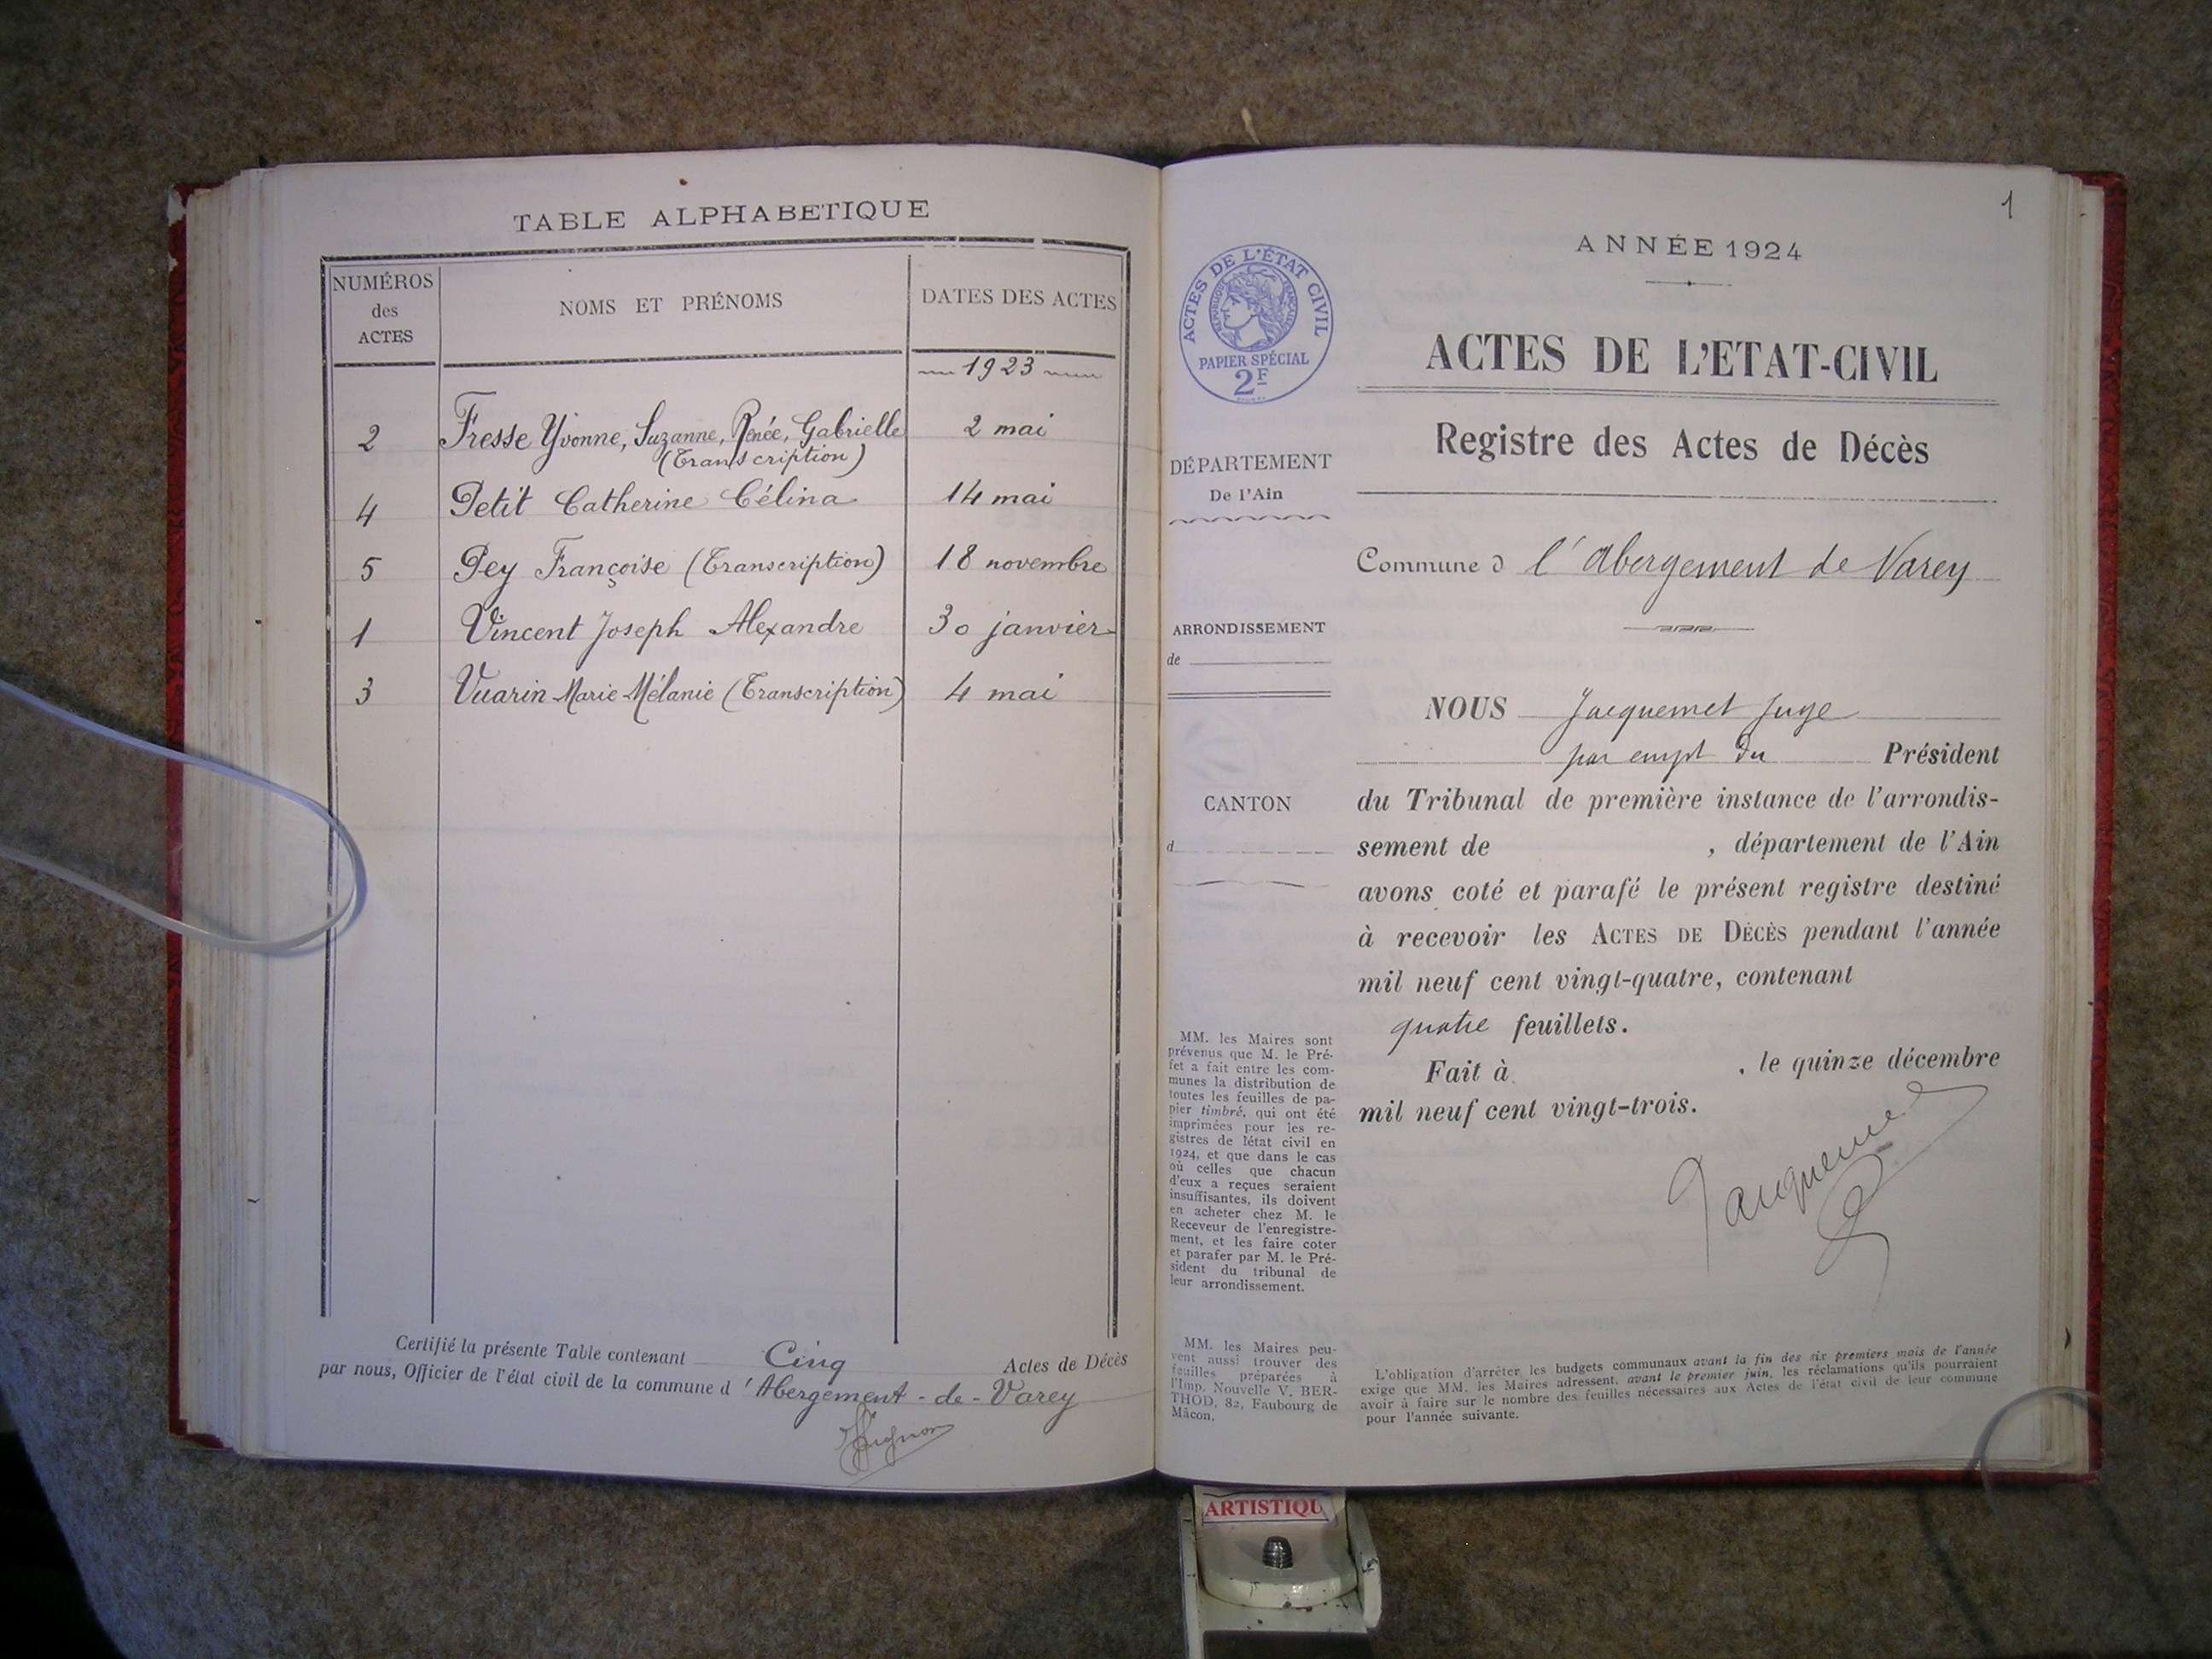 TABLE ALPHABETIQUE
NUMÉROS des ACTES
NOMS ET PRÉNOMS
DATES DES ACTES
1923
2 Fresse Yvonne, Suzanne, Renée, Gabrielle 2 mai
(Transcription)
4 Petit Catherine Célina 14 mai
5 Pey Françoise (Transcription) 18 novembre
1 Vincent Joseph Alexandre 30 janvier
3 Vuarin Marie Mélanie (Transcription) 4 mai
Certifié la présente Table contenant Cinq Actes de Décès
par nous, Officier de l'état civil de la commune d'Abergement-de-Varey
1
ANNÉE 1924
ACTES DE L'ÉTAT CIVIL
RÉPUBLIQUE FRANÇAISE
PAPIER SPÉCIAL
2F
ACTES DE L'ETAT-CIVIL
Registre des Actes de Décès
DÉPARTEMENT
De l'Ain
Commune d l'Abergement de Varey
ARRONDISSEMENT
de
NOUS Jacquemet Juge
par empt du Président
CANTON
d
du Tribunal de première instance de l'arrondis-
sement de , département de l'Ain
avons coté et parafé le présent registre destiné
à recevoir les ACTES DE DÉCÈS pendant l'année
mil neuf cent vingt-quatre, contenant
quatre feuillets.
Fait à , le quinze décembre
mil neuf cent vingt-trois.
Jacquemet
MM. les Maires sont
prévenus que M. le Pré-
fet a fait entre les com-
munes la distribution de
toutes les feuilles de pa-
pier timbré, qui ont été
imprimées pour les re-
gistres de l'état civil en
1924, et que dans le cas
où celles que chacun
d'eux a reçues seraient
insuffisantes, ils doivent
en acheter chez M. le
Receveur de l'enregistre-
ment, et les faire coter
et parafer par M. le Pré-
sident du tribunal de
leur arrondissement.
MM. les Maires peu-
vent aussi trouver des
feuilles préparées à
l'Imp. Nouvelle V. BER-
THOD, 82, Faubourg de
Mâcon.
L'obligation d'arrêter les budgets communaux avant la fin des six premiers mois de l'année
exige que MM. les Maires adressent, avant le premier juin, les réclamations qu'ils pourraient
avoir à faire sur le nombre des feuilles nécessaires aux Actes de l'état civil de leur commune
pour l'année suivante.
ARTISTIQU